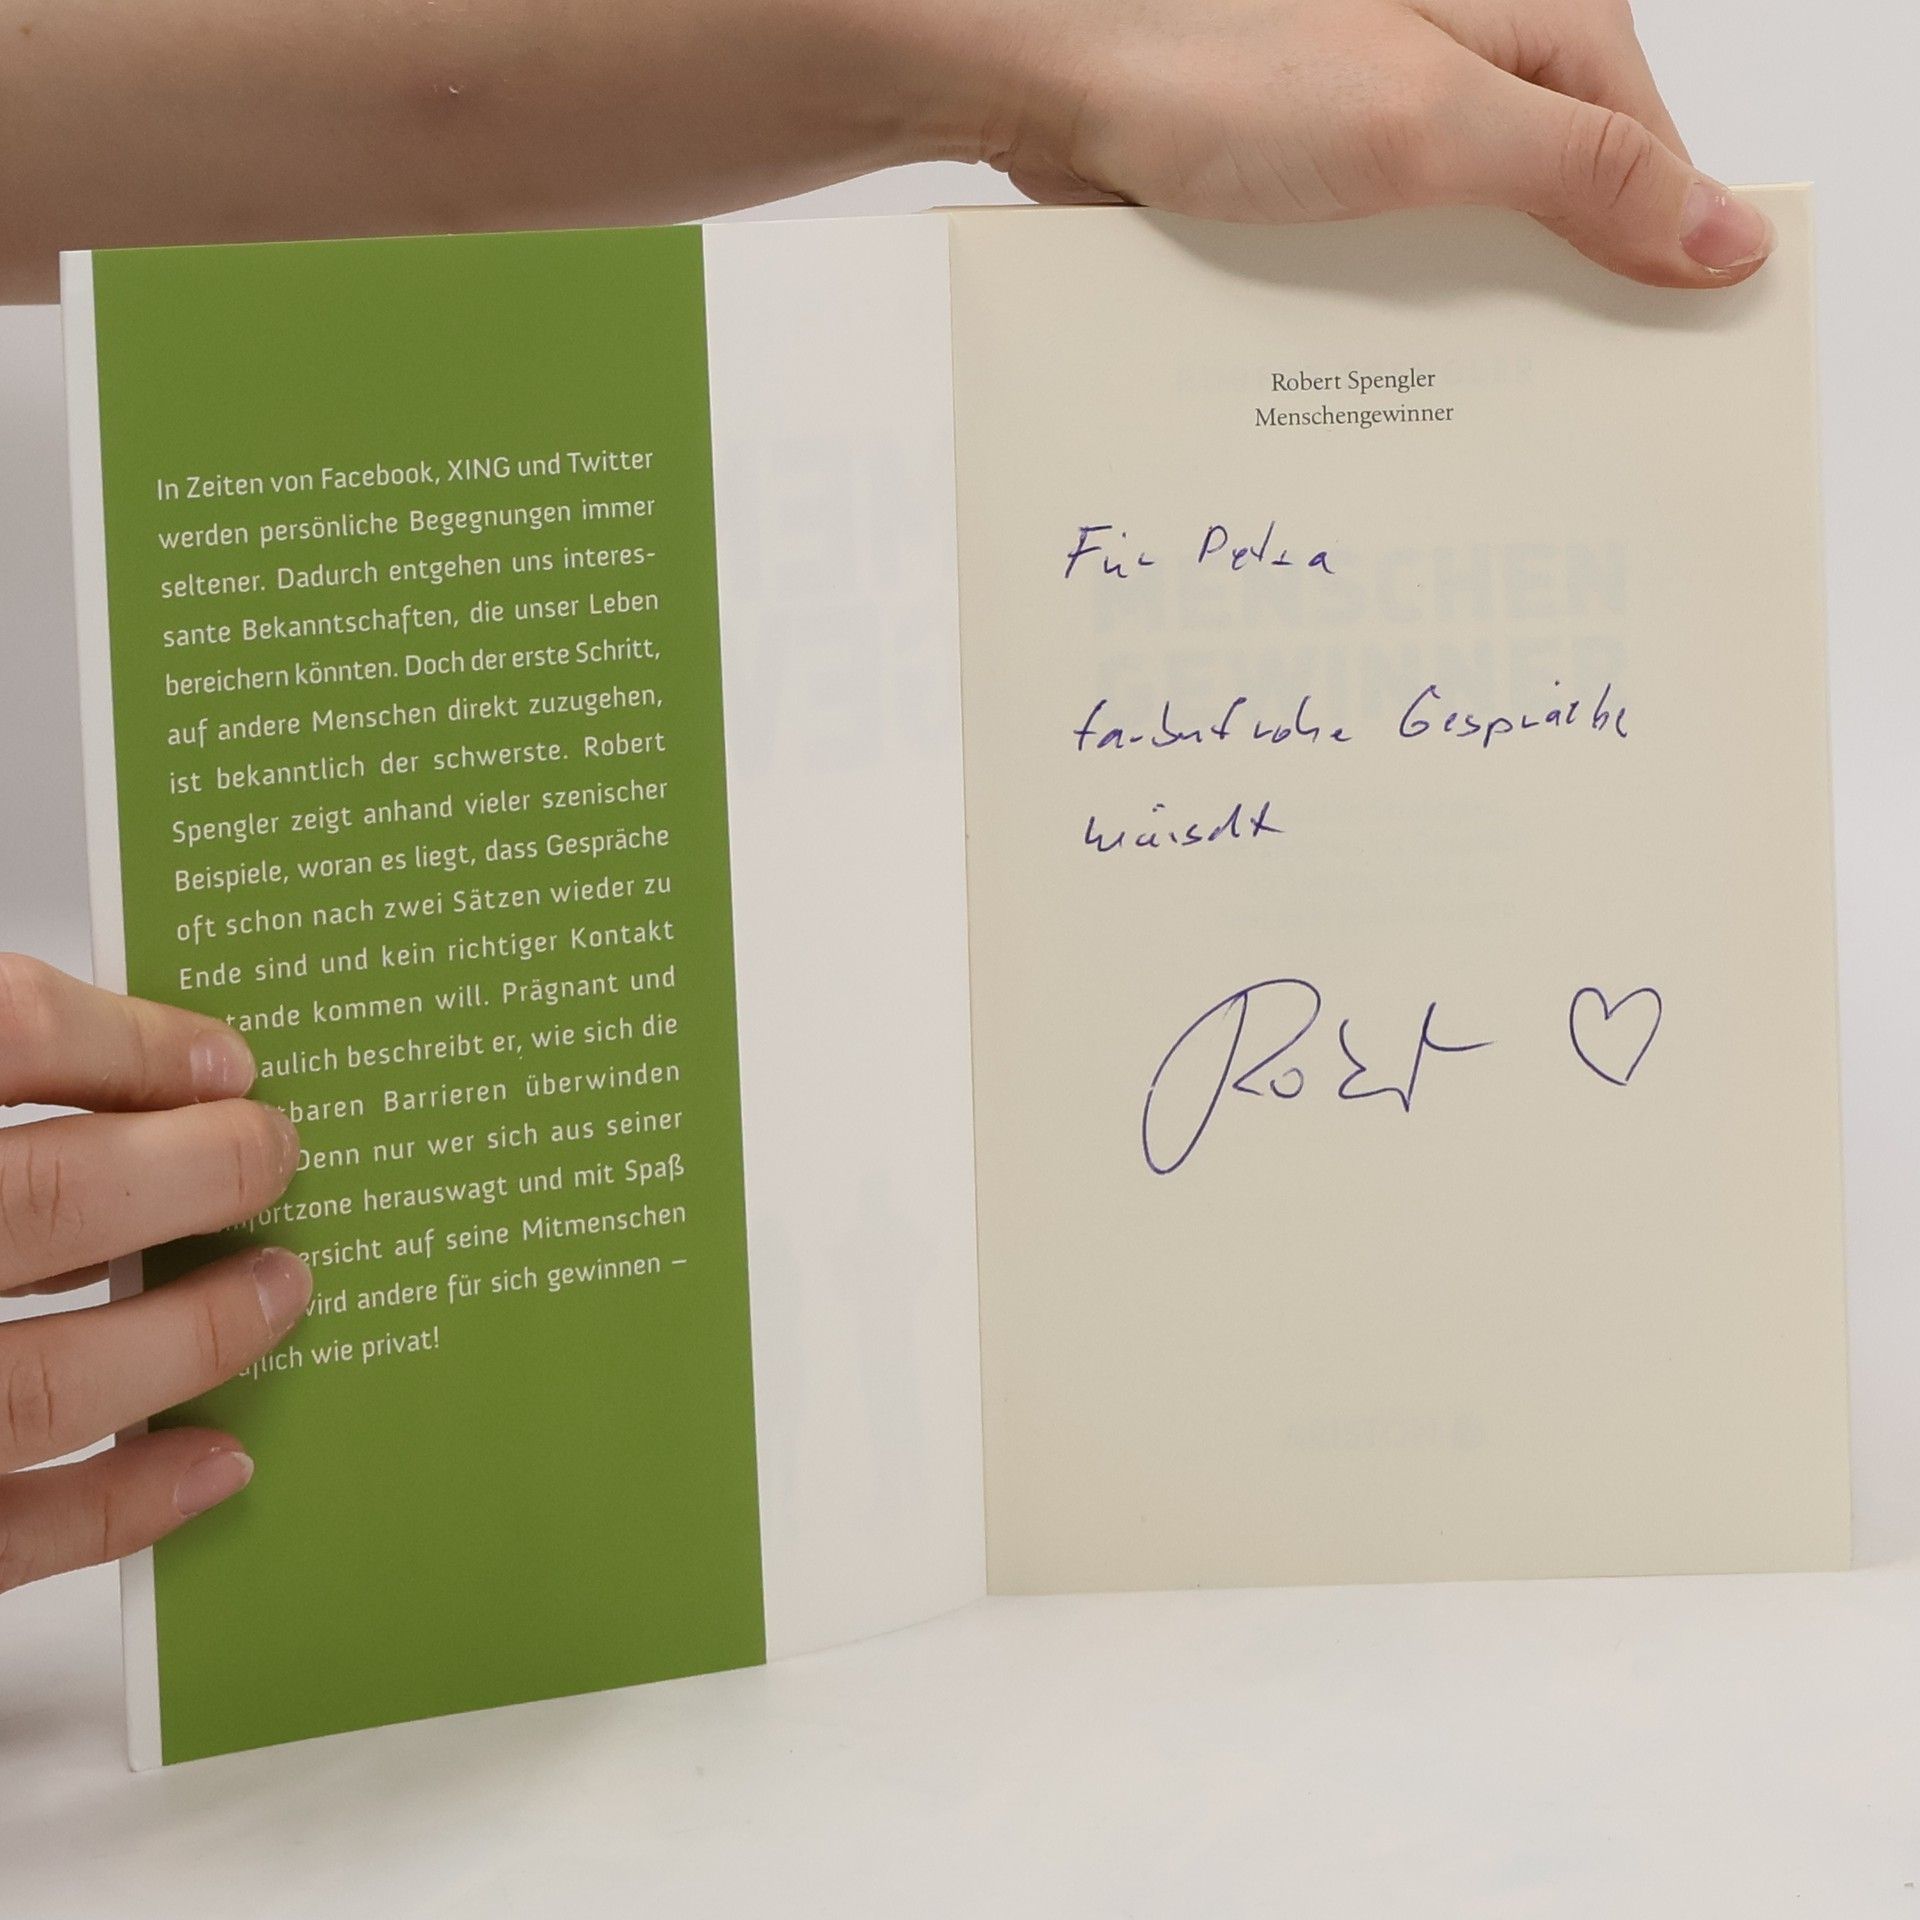 In Zeiten von Facebook, XING und Twitter
werden persönliche Begegnungen immer
seltener. Dadurch entgehen uns interes-
sante Bekanntschaften, die unser Leben
bereichern könnten. Doch der erste Schritt,
auf andere Menschen direkt zuzugehen,
ist bekanntlich der schwerste. Robert
Spengler zeigt anhand vieler szenischer
Beispiele, woran es liegt, dass Gespräche
oft schon nach zwei Sätzen wieder zu
Ende sind und kein richtiger Kontakt
tande kommen will. Prägnant und
aulich beschreibt er, wie sich die
tbaren Barrieren überwinden
Denn nur wer sich aus seiner
mfortzone herauswagt und mit Spaß
ersicht auf seine Mitmenschen
wird andere für sich gewinnen –
uflich wie privat!
Robert Spengler
Menschengewinner
Für Petra
Gespräche
wünscht
Robert
MENSCHEN
GEWINNER